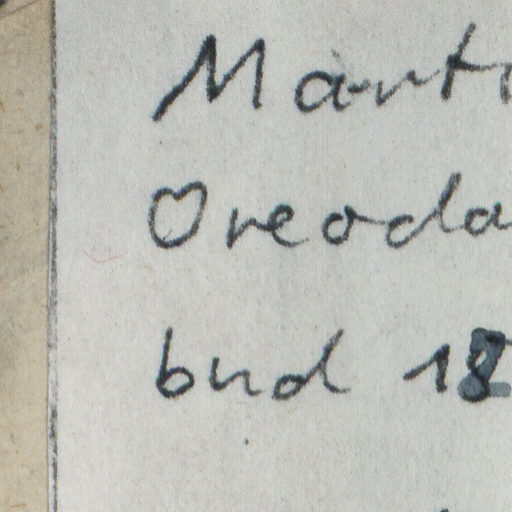 Mart
Oreoda
bud 18